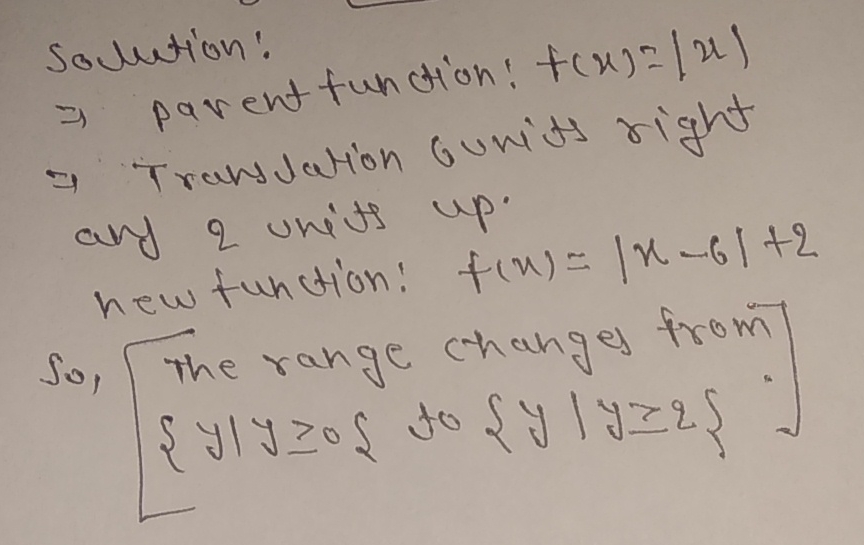 Solution:
⇒ parent function: f(x)=|x|
⇒ Translation 6 units right
and 2 units up.
new function: f(x)= |x-6|+2
So, [The range changes from
{y|y≥0} to {y|y≥2}.]